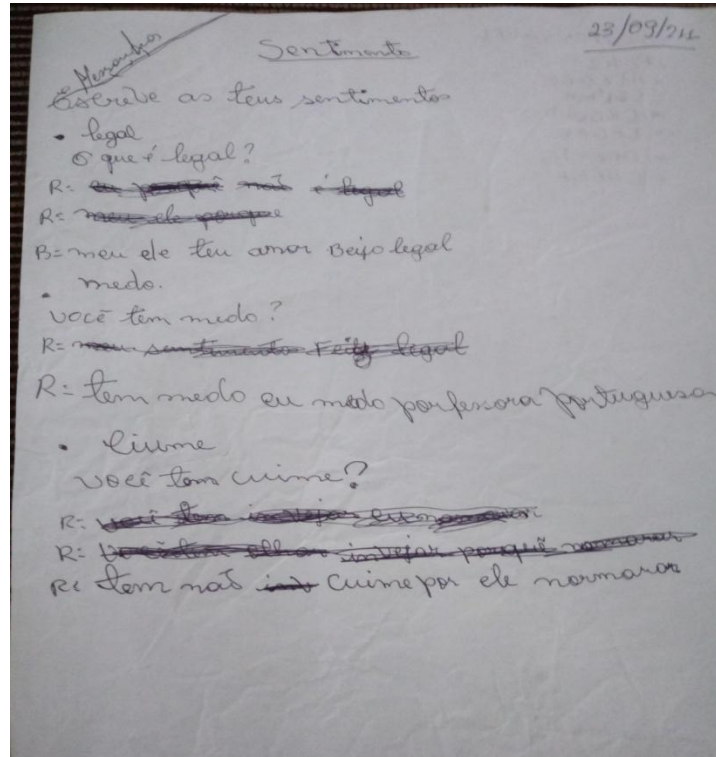 23/09/21
Sentimento
Escreve as teus sentimentos
• legal
O que é legal?
R= eu porquê naõ é legal
R= meu ele porque
B= meu ele teu amor Beijo legal
• medo.
você tem medo?
R= sentimento Feliz legal
R= tem medo eu medo porfessora portuguesa
• Ciume
você tem cuime?
R:
R: intejar porquê namorar
R: tem naõ cuime por ele normaror